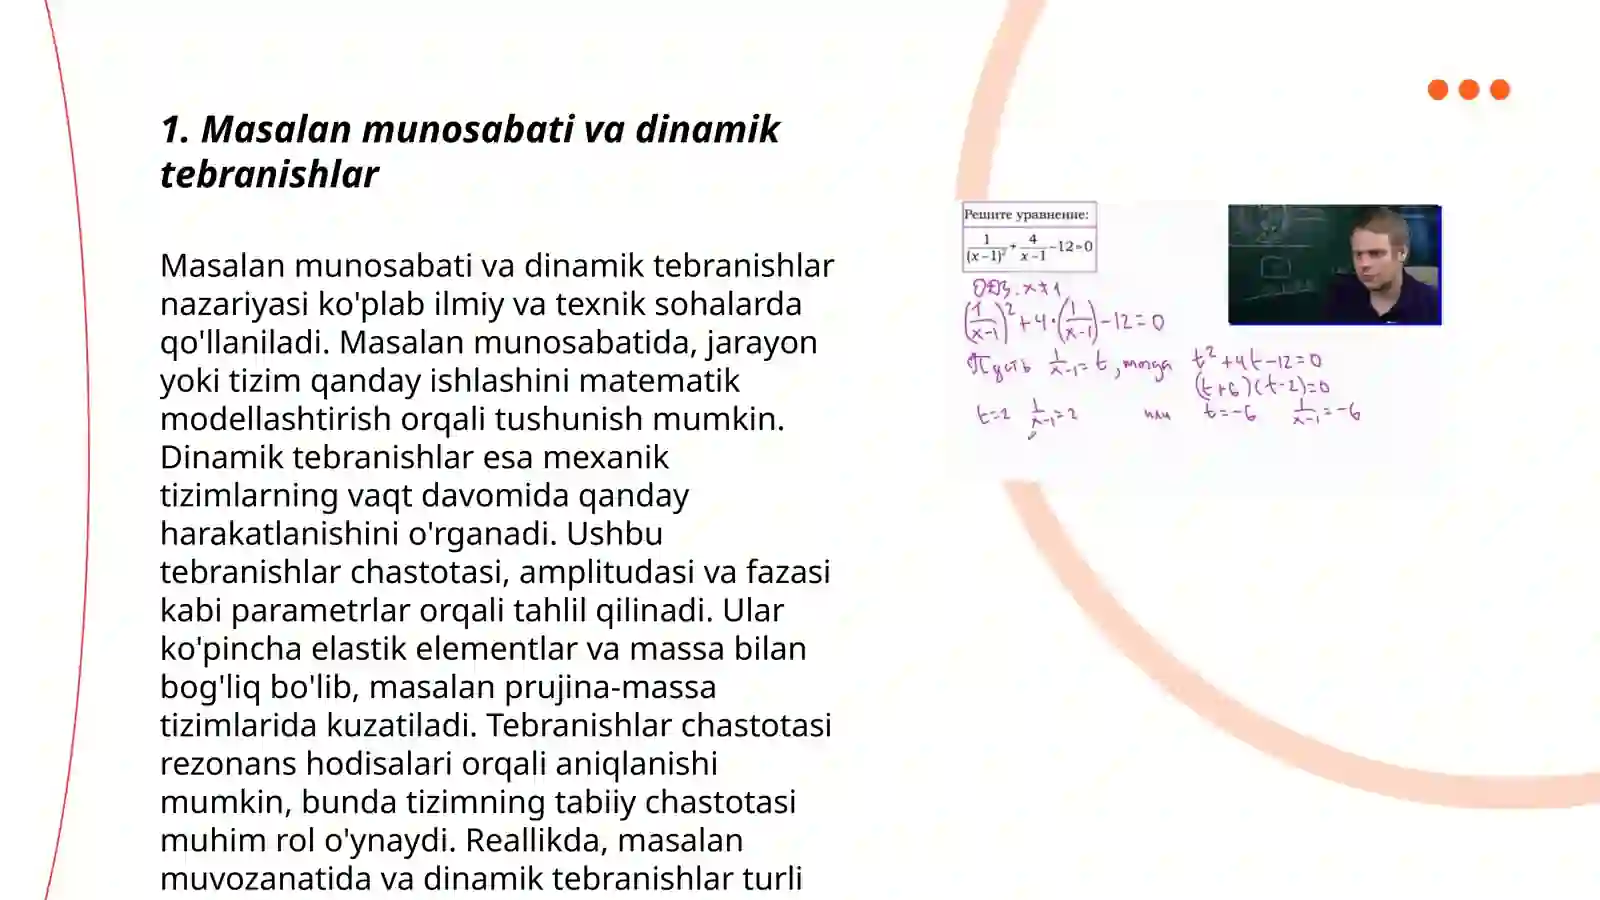 1. Masalan munosabati va dinamik
tebranishlar
Masalan munosabati va dinamik tebranishlar
nazariyasi ko'plab ilmiy va texnik sohalarda
qo'llaniladi. Masalan munosabatida, jarayon
yoki tizim qanday ishlashini matematik
modellashtirish orqali tushunish mumkin.
Dinamik tebranishlar esa mexanik
tizimlarning vaqt davomida qanday
harakatlanishini o'rganadi. Ushbu
tebranishlar chastotasi, amplitudasi va fazasi
kabi parametrlar orqali tahlil qilinadi. Ular
ko'pincha elastik elementlar va massa bilan
bog'liq bo'lib, masalan prujina-massa
tizimlarida kuzatiladi. Tebranishlar chastotasi
rezonans hodisalari orqali aniqlanishi
mumkin, bunda tizimning tabiiy chastotasi
muhim rol o'ynaydi. Reallikda, masalan
muvozanatida va dinamik tebranishlar turli
Решите уравнение:
1/(x−1)² + 4/(x−1) −12=0
ОДЗ. x≠1
(1/(x-1))² + 4·(1/(x-1)) -12=0
Пусть 1/(x-1) = t, тогда t²+4t-12=0
(t+6)(t-2)=0
t=2 1/(x-1)=2 или t=-6 1/(x-1)=-6